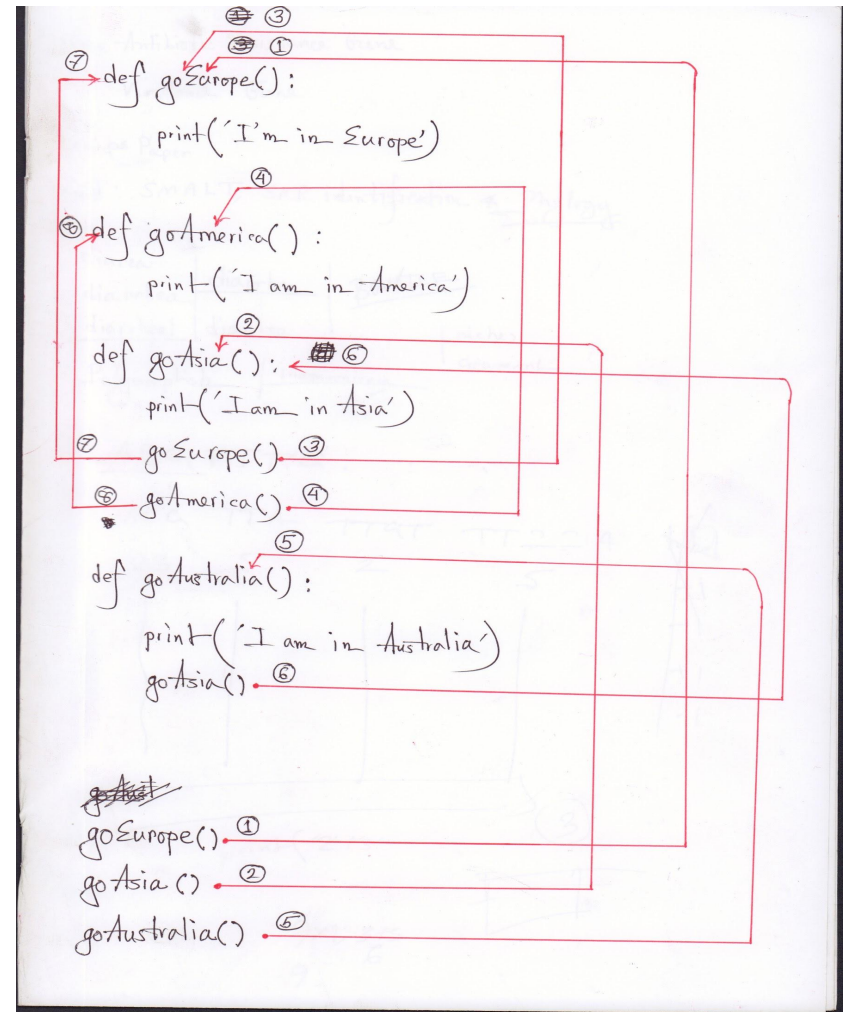 ③
①
⑦ def goEurope():
print('I'm in Europe')
④
⑧ def goAmerica() :
print('I am in America')
②
def goAsia(): ⑥
print('I am in Asia')
⑦ goEurope() ③
⑧ goAmerica() ④
⑤
def goAustralia():
print('I am in Australia')
goAsia() ⑥
goEurope() ①
goAsia () ②
goAustralia() ⑤